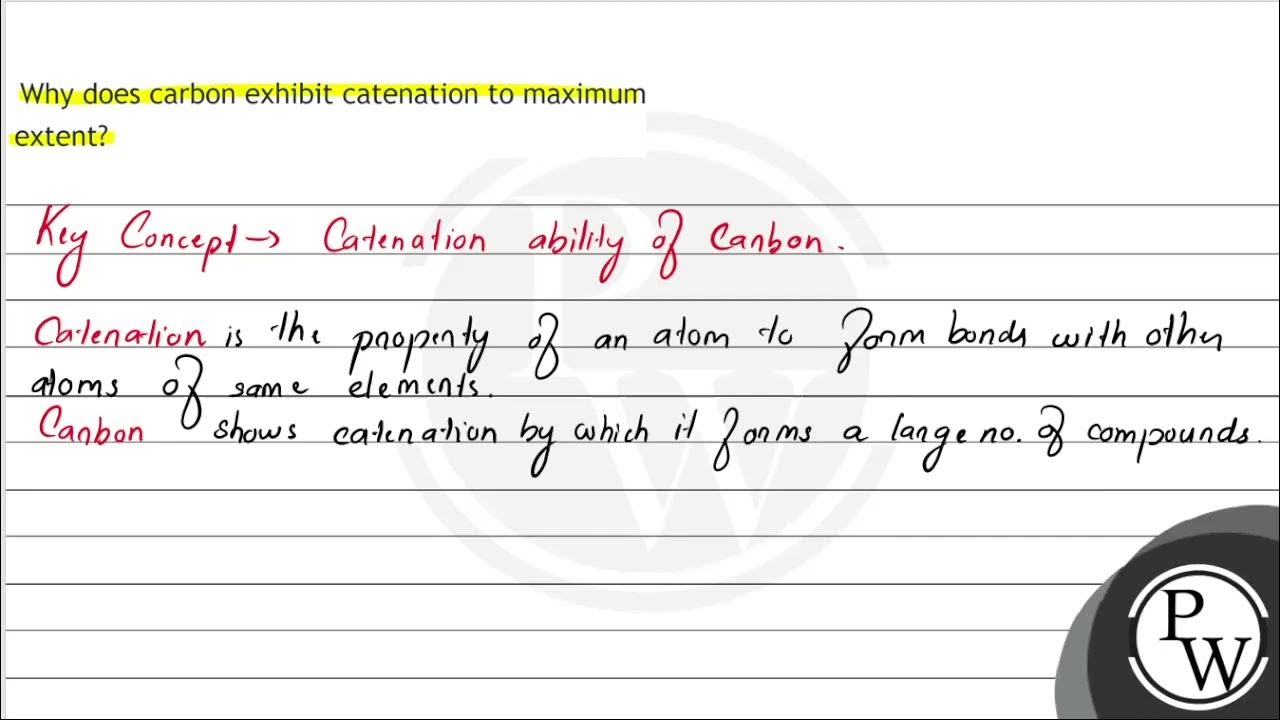 Why does carbon exhibit catenation to maximum
extent?
Key Concept → Catenation ability of Carbon.
Catenation is the property of an atom to form bonds with other
atoms of same elements.
Carbon shows catenation by which it forms a large no. of compounds.
PW
PW